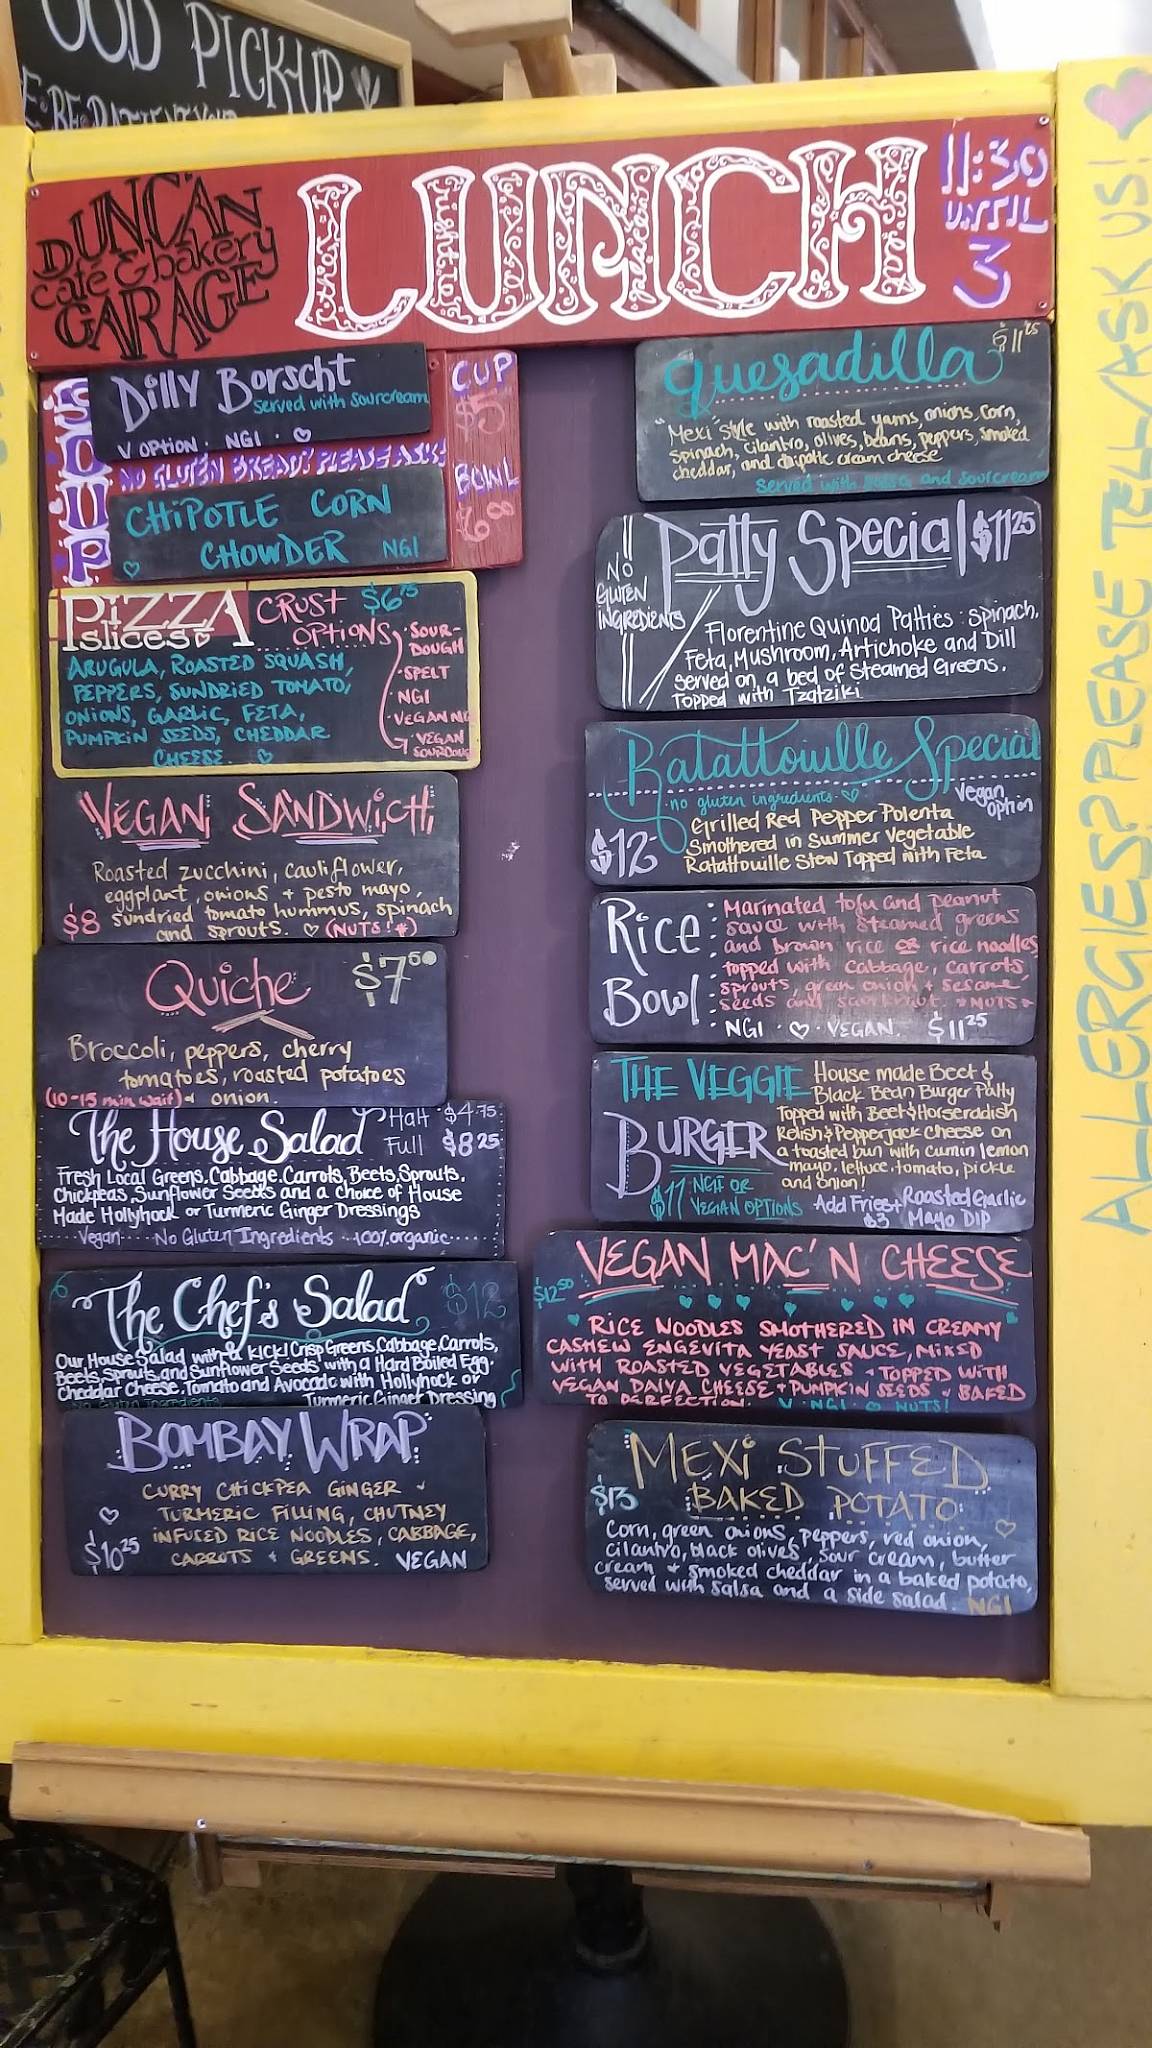 OOD PICK-UP
E: BE PATIENT
DUNCAN
café & bakery
GARAGE
LUNCH
11:30
UNTIL
3
SOUP
Dilly Borscht
served with sourcream
V OPTION · NGI ·
NO GLUTEN BREAD? PLEASE ASK!
CHIPOTLE CORN
CHOWDER NGI
CUP
$5
BOWL
PIZZA
slices
CRUST
OPTIONS
$6.75
· SOUR-
DOUGH
· SPELT
· NGI
· VEGAN NG
· VEGAN
SOURDOUG
ARUGULA, ROASTED SQUASH,
PEPPERS, SUNDRIED TOMATO,
ONIONS, GARLIC, FETA,
PUMPKIN SEEDS, CHEDDAR
CHEESE.
VEGAN SANDWICH
Roasted zucchini, cauliflower,
eggplant, onions + pesto mayo,
sundried tomato hummus, spinach
and sprouts. (NUTS!*)
$8
Quiche
$7.50
Broccoli, peppers, cherry
tomatoes, roasted potatoes
(10-15 min wait) & onion.
The House Salad
Half $4.75
Full $8.25
Fresh Local Greens, Cabbage, Carrots, Beets, Sprouts,
Chickpeas, Sunflower Seeds and a choice of House
Made Hollyhock or Turmeric Ginger Dressings
Vegan No Gluten Ingredients 100% organic
The Chef's Salad
$12
Our House Salad with a KICK! Crisp Greens, Cabbage, Carrots,
Beets, Sprouts, and Sunflower Seeds with a Hard Boiled Egg,
Cheddar Cheese, Tomato and Avocado with Hollyhock or
No Gluten Ingredients Turmeric Ginger Dressing
BOMBAY WRAP
CURRY CHICKPEA GINGER +
TURMERIC FILLING, CHUTNEY
INFUSED RICE NOODLES, CABBAGE,
CARROTS + GREENS. VEGAN
$10.25
quesadilla
$11.25
"Mexi" style with roasted yams, onions, corn,
spinach, cilantro, olives, beans, peppers, smoked
cheddar, and chipotle cream cheese
served with salsa and sourcream
Patty Special
$11.25
NO
GLUTEN
INGREDIENTS
Florentine Quinoa Patties: Spinach,
Feta, Mushroom, Artichoke and Dill
served on a bed of Steamed Greens.
Topped with Tzatziki
Ratattouille Special
· no gluten ingredients ·
Vegan
option
$12
Grilled Red Pepper Polenta
Smothered in Summer Vegetable
Ratattouille Stew Topped with Feta
Rice
Bowl
Marinated tofu and peanut
sauce with steamed greens
and brown rice OR rice noodles
topped with cabbage, carrots,
sprouts, green onion + sesame
seeds and sauerkraut. *NUTS*
NGI · VEGAN. $11.25
THE VEGGIE
BURGER
House made Beet &
Black Bean Burger Patty
Topped with Beet & Horseradish
Relish & Pepperjack Cheese on
a toasted bun with cumin lemon
mayo, lettuce, tomato, pickle
and onion!
$11
NGI OR
VEGAN OPTIONS
Add Fries + Roasted Garlic
$3 Mayo DIP
VEGAN MAC'N CHEESE
$12.50
RICE NOODLES SMOTHERED IN CREAMY
CASHEW ENGEVITA YEAST SAUCE, MIXED
WITH ROASTED VEGETABLES + TOPPED WITH
VEGAN DAIYA CHEESE + PUMPKIN SEEDS & BAKED
TO PERFECTION. V · NGI · NUTS!
MEXI STUFFED
$13 BAKED POTATO
Corn, green onions, peppers, red onion,
cilantro, black olives, sour cream, butter
cream + smoked cheddar in a baked potato,
served with salsa and a side salad. NGI
ALLERGIES? PLEASE TELL/ASK US!